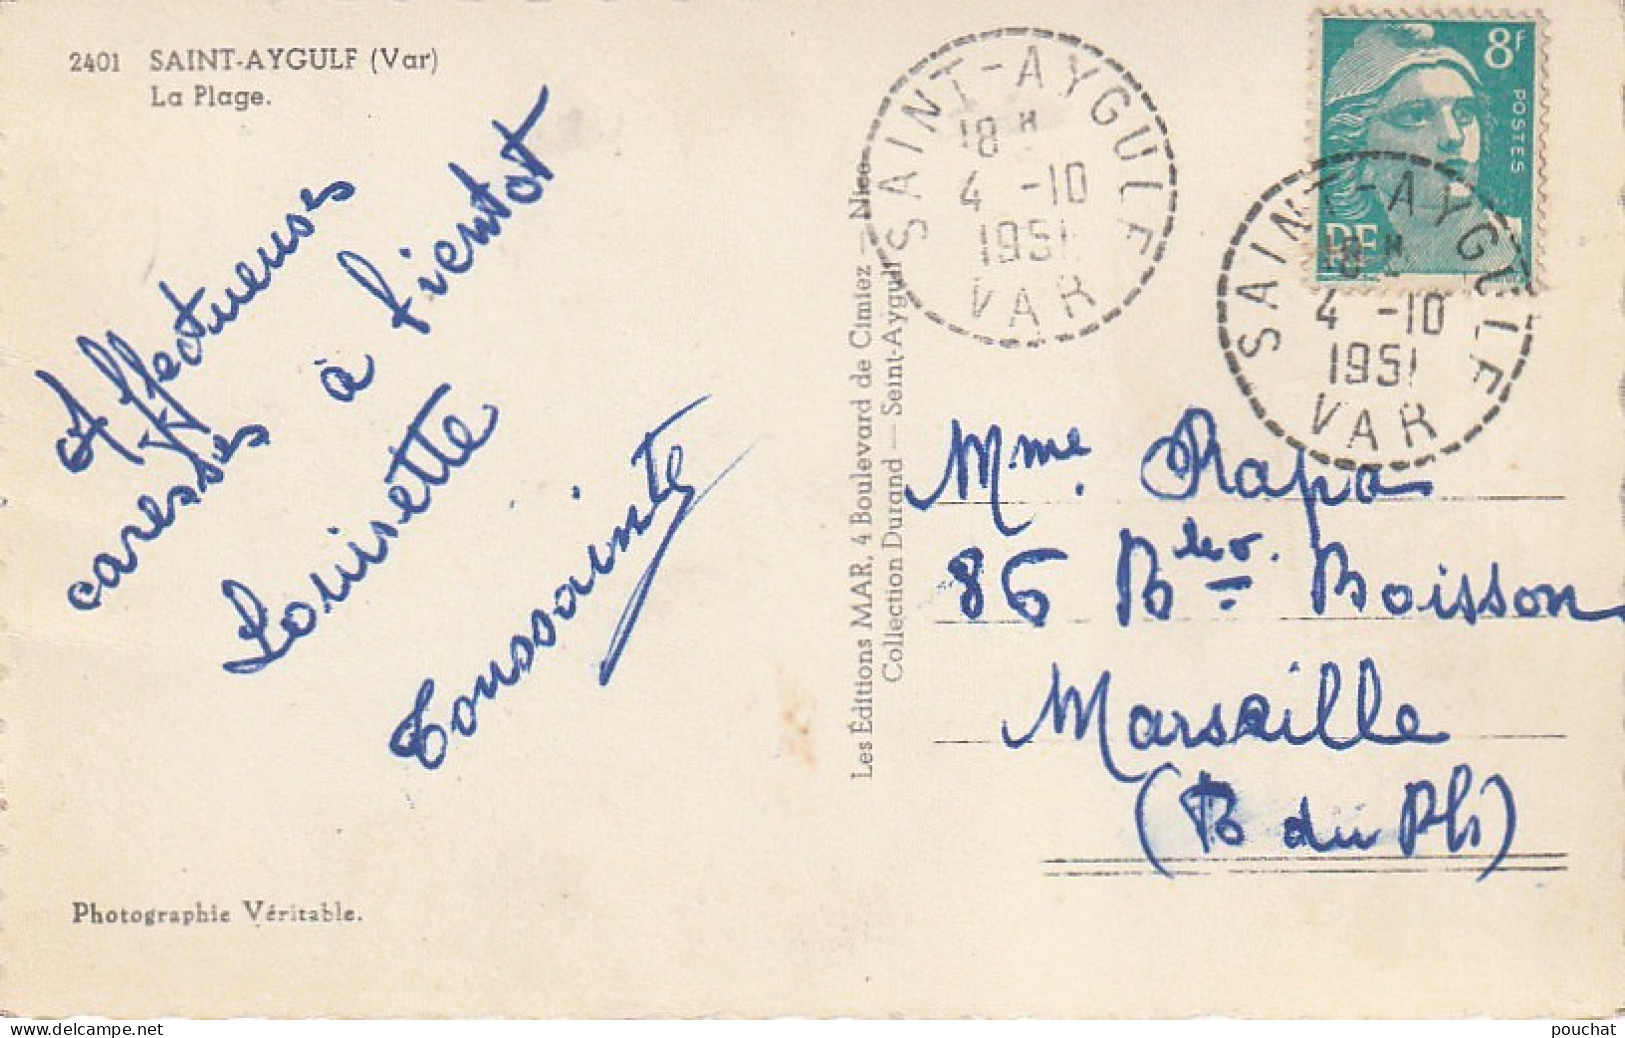 2401 SAINT-AYGULF (Var)
La Plage.
Affectueuses
caresses à bientot
Louisette
Toussainte
Photographie Véritable.
Les Éditions MAR, 4 Boulevard de Cimiez — Nice
Collection Durand — Seint-Aygulf
SAINT-AYGULF
18 H
4 -10
1951
VAR
8F
POSTES
RF
SAINT-AYGULF
18 H
4 -10
1951
VAR
Mme. Rapa
86 Blev. Boisson
Marseille
(B du Rh)
www.delcampe.net
pouchat